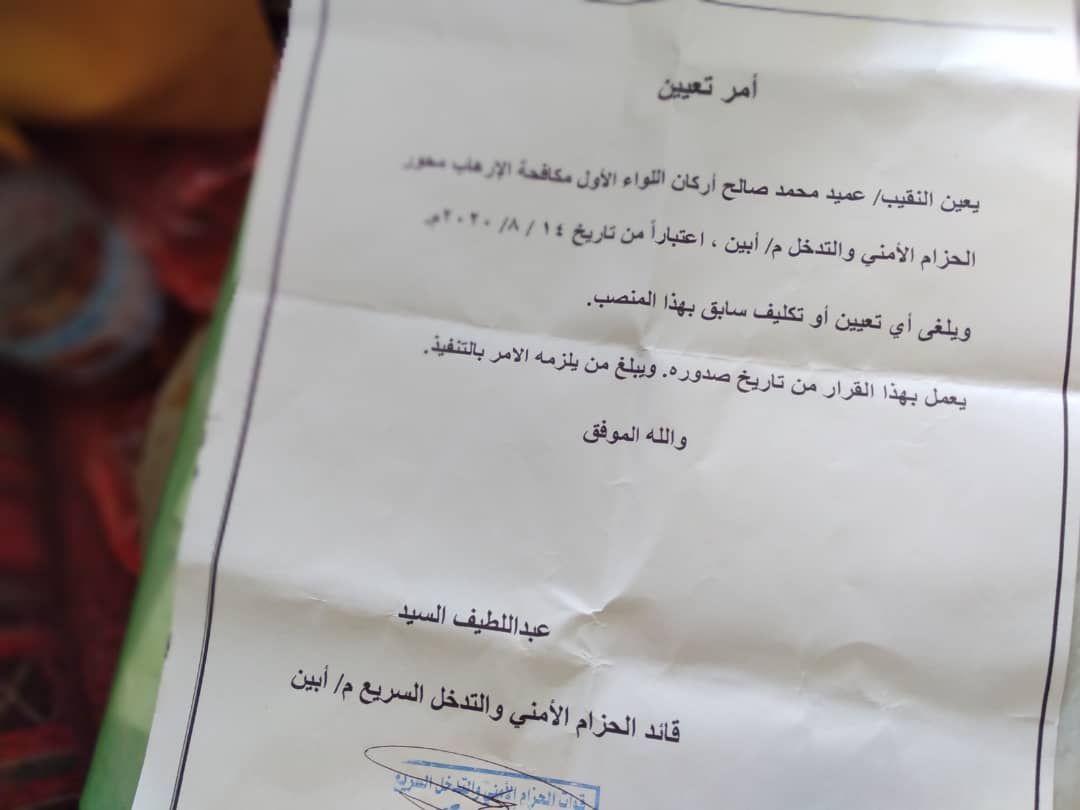 أمر تعيين
يعين النقيب/ عميد محمد صالح أركان اللواء الأول مكافحة الإرهاب محور
الحزام الأمني والتدخل م/ أبين ، اعتباراً من تاريخ ١٤ / ٨/ ٢٠٢٠م.
ويلغى أي تعيين أو تكليف سابق بهذا المنصب.
يعمل بهذا القرار من تاريخ صدوره. ويبلغ من يلزمه الامر بالتنفيذ.
والله الموفق
عبداللطيف السيد
قائد الحزام الأمني والتدخل السريع م/ أبين
قوات الحزام الأمني والتدخل السريع